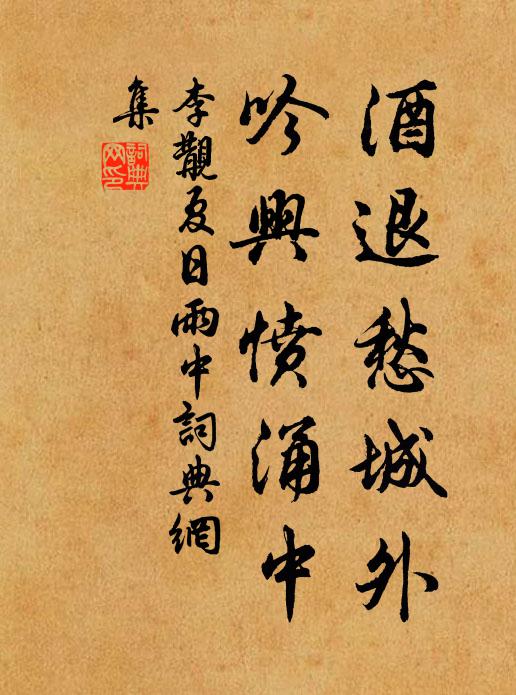 酒退愁城外
吟興憤涌中
李覯夏日雨中詞典網
集
詞典
网印